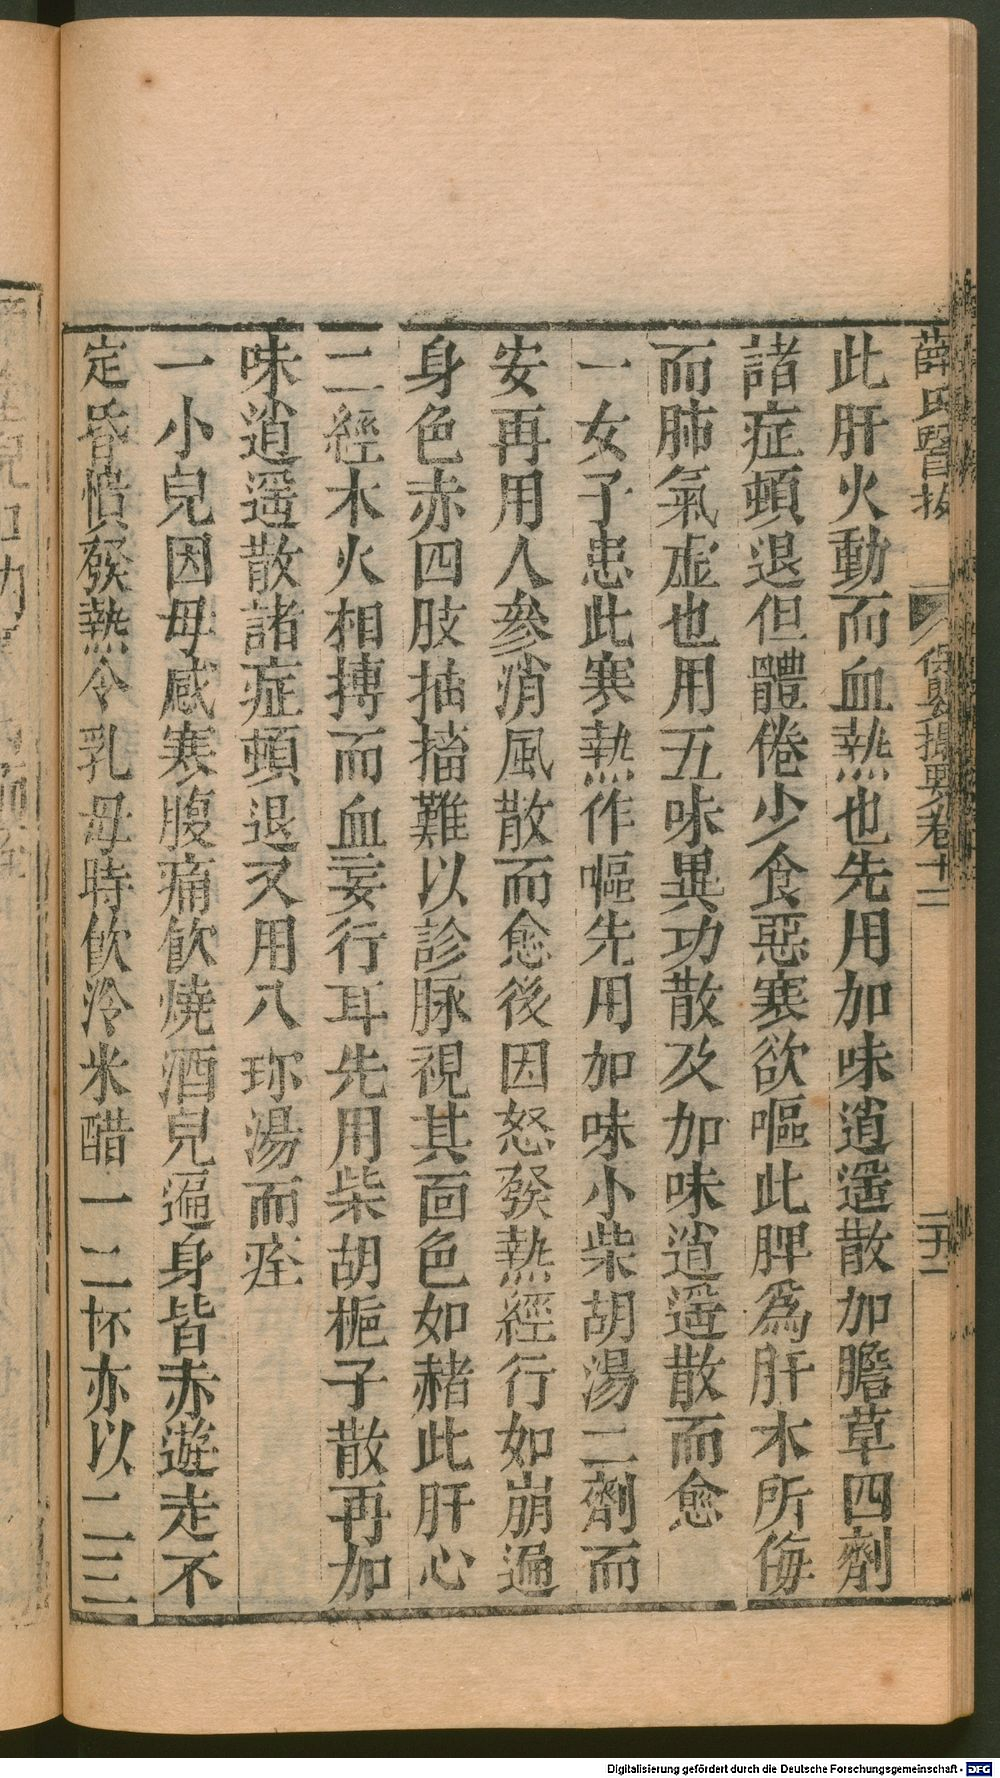 薛氏醫按　保嬰撮要卷十二
此肝火動而血熱也先用加味逍遥散加膽草四劑
諸症頓退但體倦少食惡寒欲嘔此脾爲肝木所侮
而肺氣虛也用五味異功散及加味逍遥散而愈
一女子患此寒熱作嘔先用加味小柴胡湯二劑而
安再用人參消風散而愈後因怒發熱經行如崩遍
身色赤四肢抽搐難以診脉視其面色如赭此肝心
二經木火相搏而血妄行耳先用柴胡梔子散再加
味逍遥散諸症頓退又用八珍湯而痊
一小兒因母感寒腹痛飲燒酒兒遍身皆赤遊走不
定昏憒發熱令乳母時飲冷米醋一二杯亦以二三
Digitalisierung gefördert durch die Deutsche Forschungsgemeinschaft - DFG